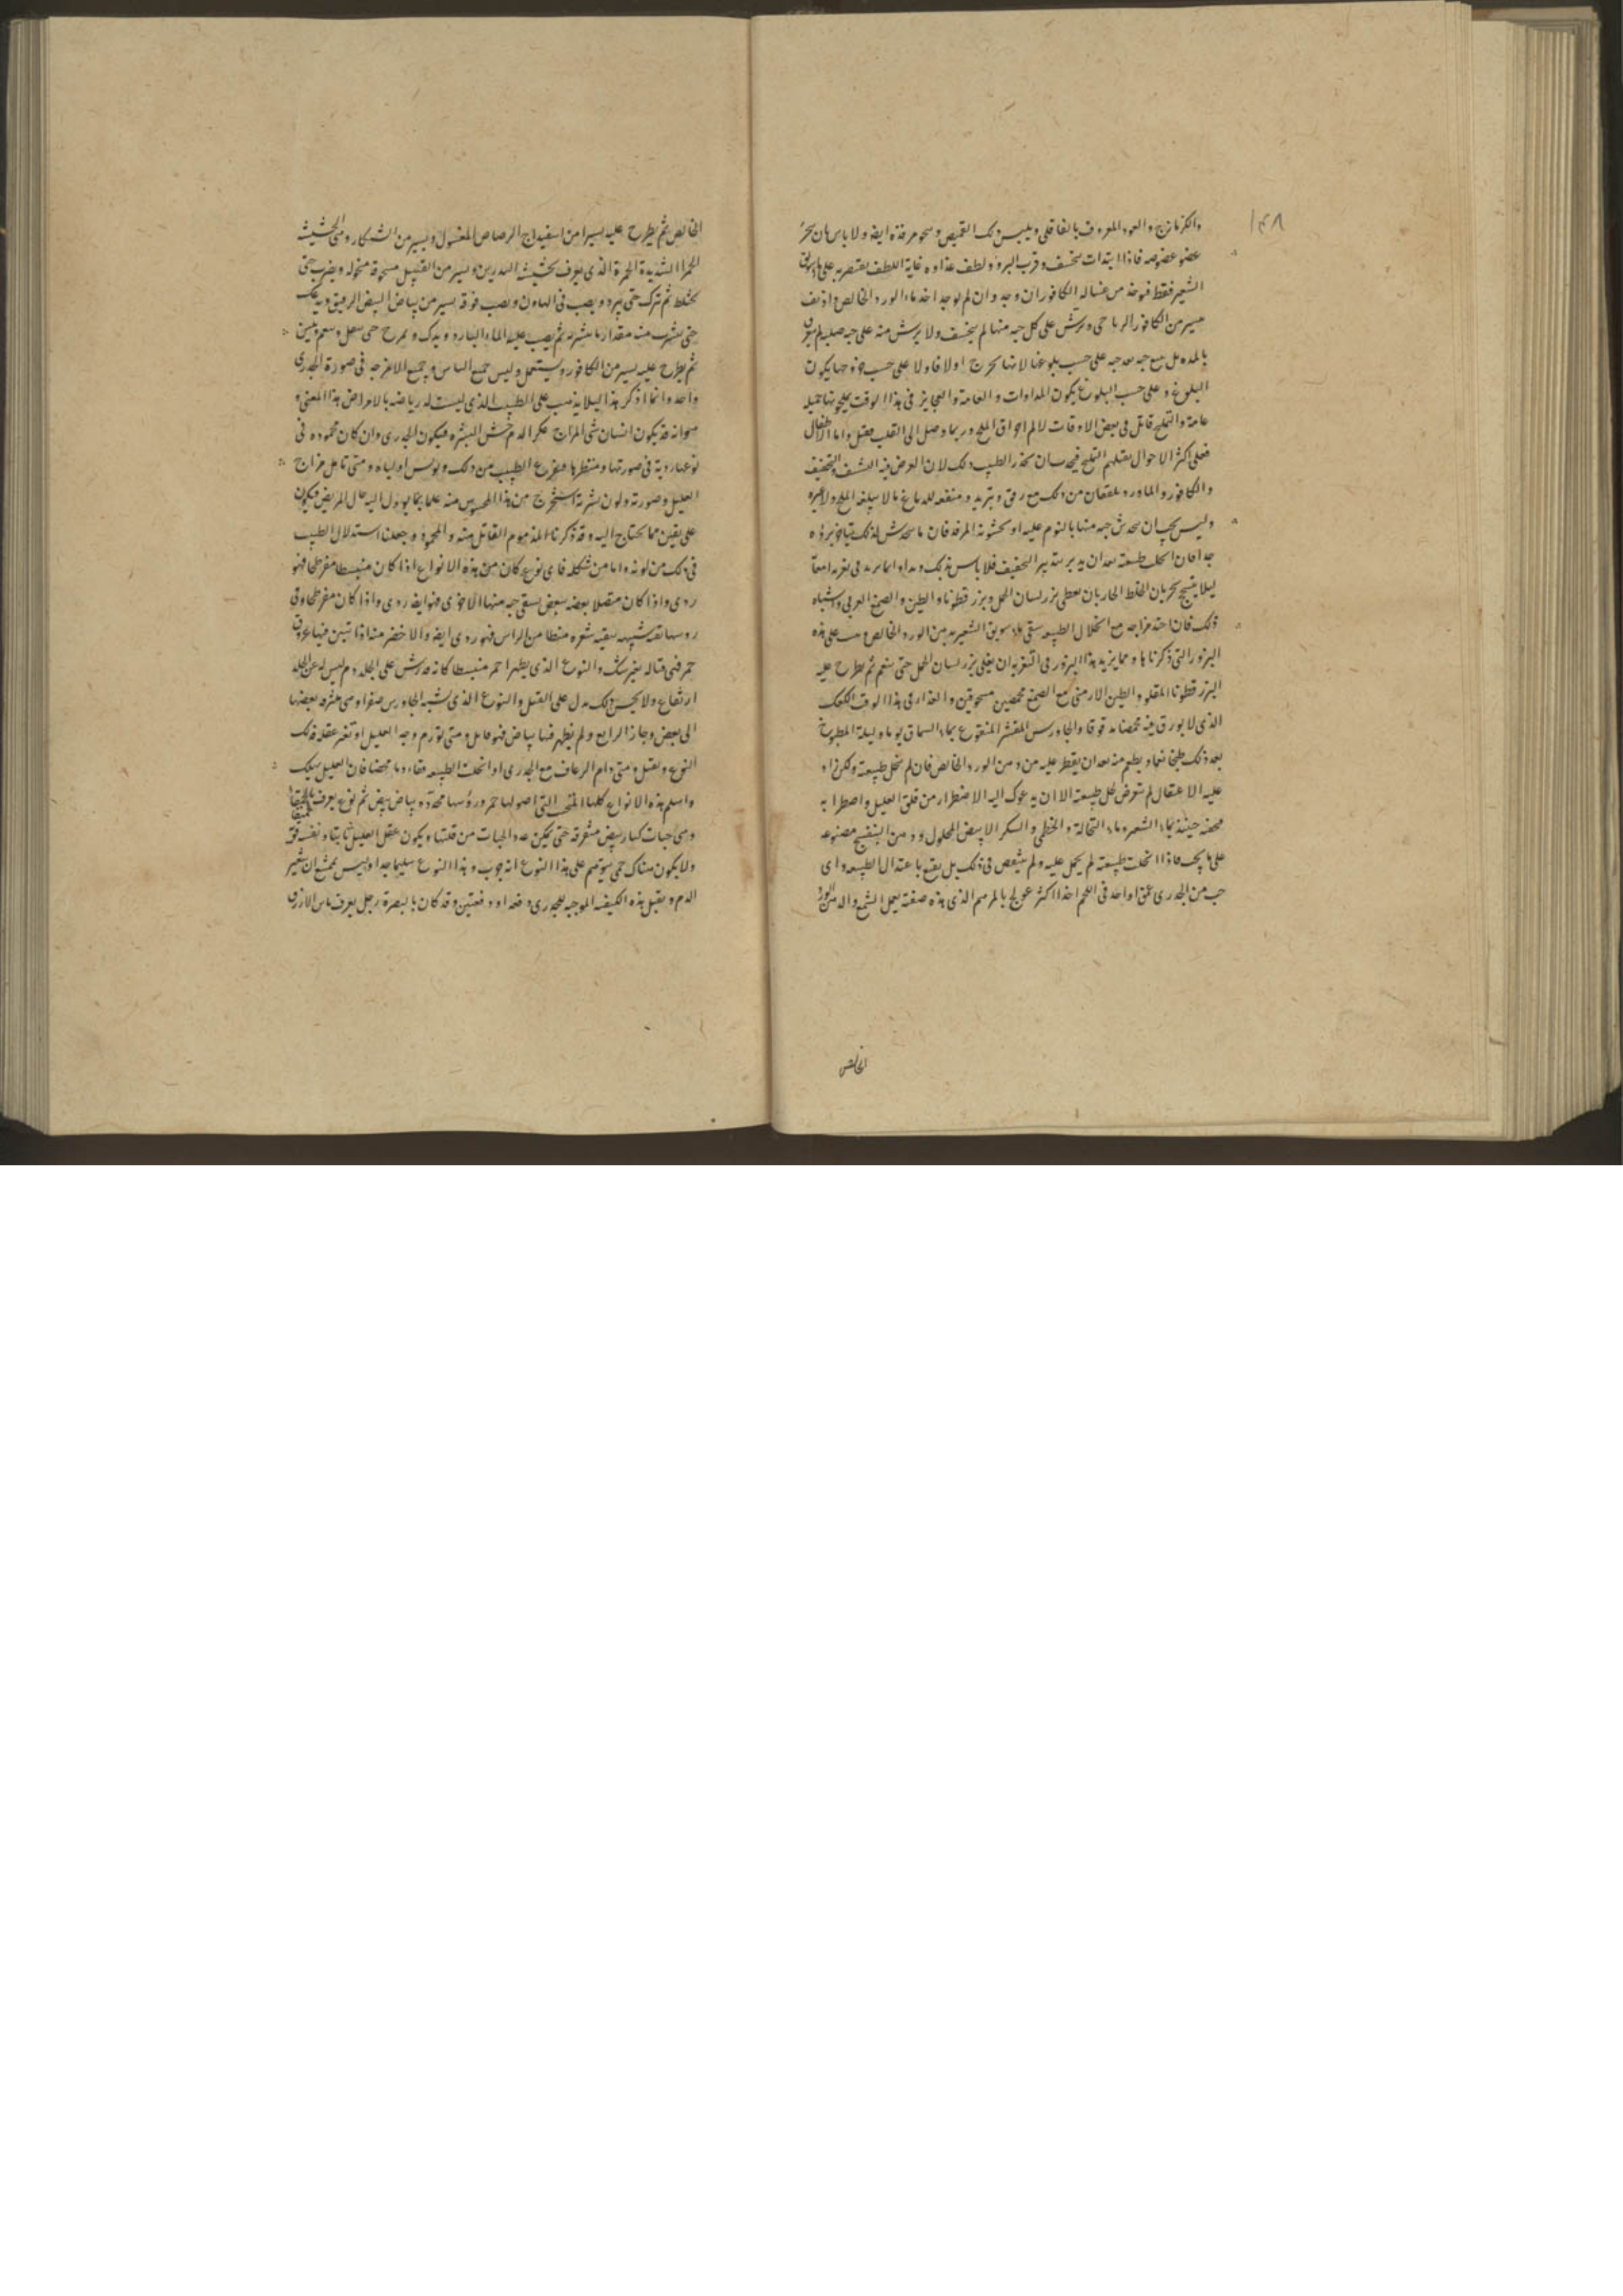 ١٤٨
والكزمازج والعود المعروف بالفاقلى ويلبس ذلك القميص وسحو مرفقه ايضا ولا باس بان يبخر
عضو عضو منه فاذا ابتدات تنخسف وقرب البرؤ ولطف غذاوه غاية اللطف يقتصر به على ما سويق
الشعير فقط فيوخذ من غسالة الكافور ان وجد وان لم يوجد اخذ ماء الورد الخالص اذيف
يسير من الكافور الرباحى ويرش على كل حبه منها لم ينخسف ولا يرش منه على حبه صلبه لم
بالمده بل يتبع حبه بعد حبه على حسب بلوغها لانها تخرج اولا فاولا على حسب خروجها يكون
البلوغ وعلى حسب البلوغ يكون المداوات والعامة والعجايز فى هذا الوقت يملحونها تمليحه
عامة والتمليح قاتل فى بعض الاوقات لالم احراق الملح وربما وصل الى القلب فقتل واما الاطفال
فعلى اكثر الاحوال يقتلهم التمليح فيجب ان يحذر الطبيب ذلك لان الغرض فيه النشف والتجفيف
والكافور والماورد يبلغان من ذلك مع رفق وتبريد ومنفعه للدماغ ما لا يبلغه الملح ولا غيره
وليس يجب ان يخدش حبه منها بالنوم عليه او خشونة المرقد فان ما يخدش لذلك يتاخر برؤه
جدا فان انحلت طبيعته بعد ان يدبر بتدبير التجفيف فلا باس بذلك
ليلا ينسحج بجريان الخلط الحاد بان يعطى بزر لسان الحمل وبزر قطونا والطين والصمغ العربى واشباه
ذلك فان احتد مزاجه مع انحلال الطبيعه سقى ماء سويق الشعير مع دهن الورد الخالص على هذه
البزور التى ذكرناها ومما يزيد هذا البزور فى التغرية ان يغلى بزر لسان الحمل حتى ينعم ثم يطرح عليه
البزر قطونا المقلو والطين الارمنى مع الصمغ محمصين مسحوقين والغذاء فى هذا الوقت الكعك
الذى لا بورق فيه محمصا مدقوقا والجاورس المقشر المنقوع بماء السماق يوما وليلة المطبوخ
بعد ذلك طبخا نعما ويطعم منه بعد ان يقطر عليه من دهن الورد الخالص فان لم تنحل طبيعته ولكن زاد
عليه الاعتقال لم تتعرض لحل طبيعته الا ان يدعوك اليه الاضطرار من قلق العليل واضطرابه
فحقنه حينئذ بماء الشعير وماء النخالة والخطمى والسكر الابيض المحلول ودهن البنفسج مصنوعه
على ما يجب فاذا انحلت طبيعته لم يحمل عليه ولم يستقص فى ذلك بل يقنع باعتدال الطبيعه واى
حب من الجدرى عمق او احد فى اللحم اخذا اكثر عولج بالمرهم الذى هذه صفته يعمل الشمع والدهن الورد
الخالص
الخالص ثم يطرح عليه يسيرا من اسفيداج الرصاص المغسول ويسير من الشنكار وهى الحشيشة
الحمرا الشديدة الحمرة الذى يعرف بحشيشة السدرين ويسير من القنبيل مسحوقة منخوله ويضرب حتى
يختلط ثم يترك حتى يبرد ويصب فى الهاون ويصب فوقه يسير من بياض البيض الرقيق ويدعك
حتى يشرب منه مقدار ما يشربه ثم يصب عليه الماء البارد ويدلك ويمرخ حتى
ثم يطرح عليه يسير من الكافور ويستعمل وليس جميع الناس وجميع الامزجه فى صورة الجدرى
واحد وانما اذكر هذا ليلا يذهب على الطبيب الذى ليست له رياضه بالامراض هذا المعنى و
هو انه قد يكون انسان سىء المزاج عكر الدم خشن البشره فيكون الجدرى وان كان محموده فى
نوعها ردية فى صورتها ومنظرها فيفزع الطبيب من ذلك ويويس اولياه ومتى تامل مزاج
العليل وصورته ولون بشرته استخرج من هذا المحسوس منه علما بما يوول اليه حال المريض فيكون
على يقين مما يحتاج اليه وقد ذكرنا المذموم القاتل منه والمحمود وجعلنا استدلال الطبيب
فى ذلك من لونه واما من شكله فاى نوع كان من هذه الانواع اذا كان منبسطا مفرطحا فهو
ردى واذا كان متصلا بعضه ببعض يسقى حبه منها الاخرى فهو ايضا ردى واذا كان مفرطحا وفى
روسها نقط شبيهه بنقبه شعره منحطا من الراس فهو ردى ايضا والاخضر منه اذا تبين فيها عروق
حمر فهى قتاله بغير شك والنوع الذى يظهر احمر منبسطا كانه قد رش على الجلد دم ليس له عن الجلد
ارتفاع ولا يحس ذلك يدل على القتل والنوع الذى شبه الجاورس صفرا وهى متشرفه بعضها
الى بعض وجاز الرابع ولم يظهر فيها بياض فهو قاتل ومتى تورم وجه العليل او تغير عقله فذلك
النوع ويقتل ومتى دام الرعاف مع الجدرى او انحلت الطبيعه فقاء دما محضا فان العليل يهلك
واسلم هذه الانواع كلها المنتخب التى اصولها حمر وروسها محدده بياض بيض ثم نوع يعرف بالحميقا
وهى حبات كبار بيض متفرقة حتى يمكن عد الحبات من قلتها ويكون عقل العليل ثابتا ونفسه قويّة
ولا يكون هناك حمى سوتهم على هذا النوع انه جوب وهذا النوع سليما جدا وليس يمتنع ان يتغير
الدم ويقبل هذه الكيفيه الموجبه للجدرى دفعه او دفعتين وقد كان بالبصرة رجل يعرف بابن الازرق